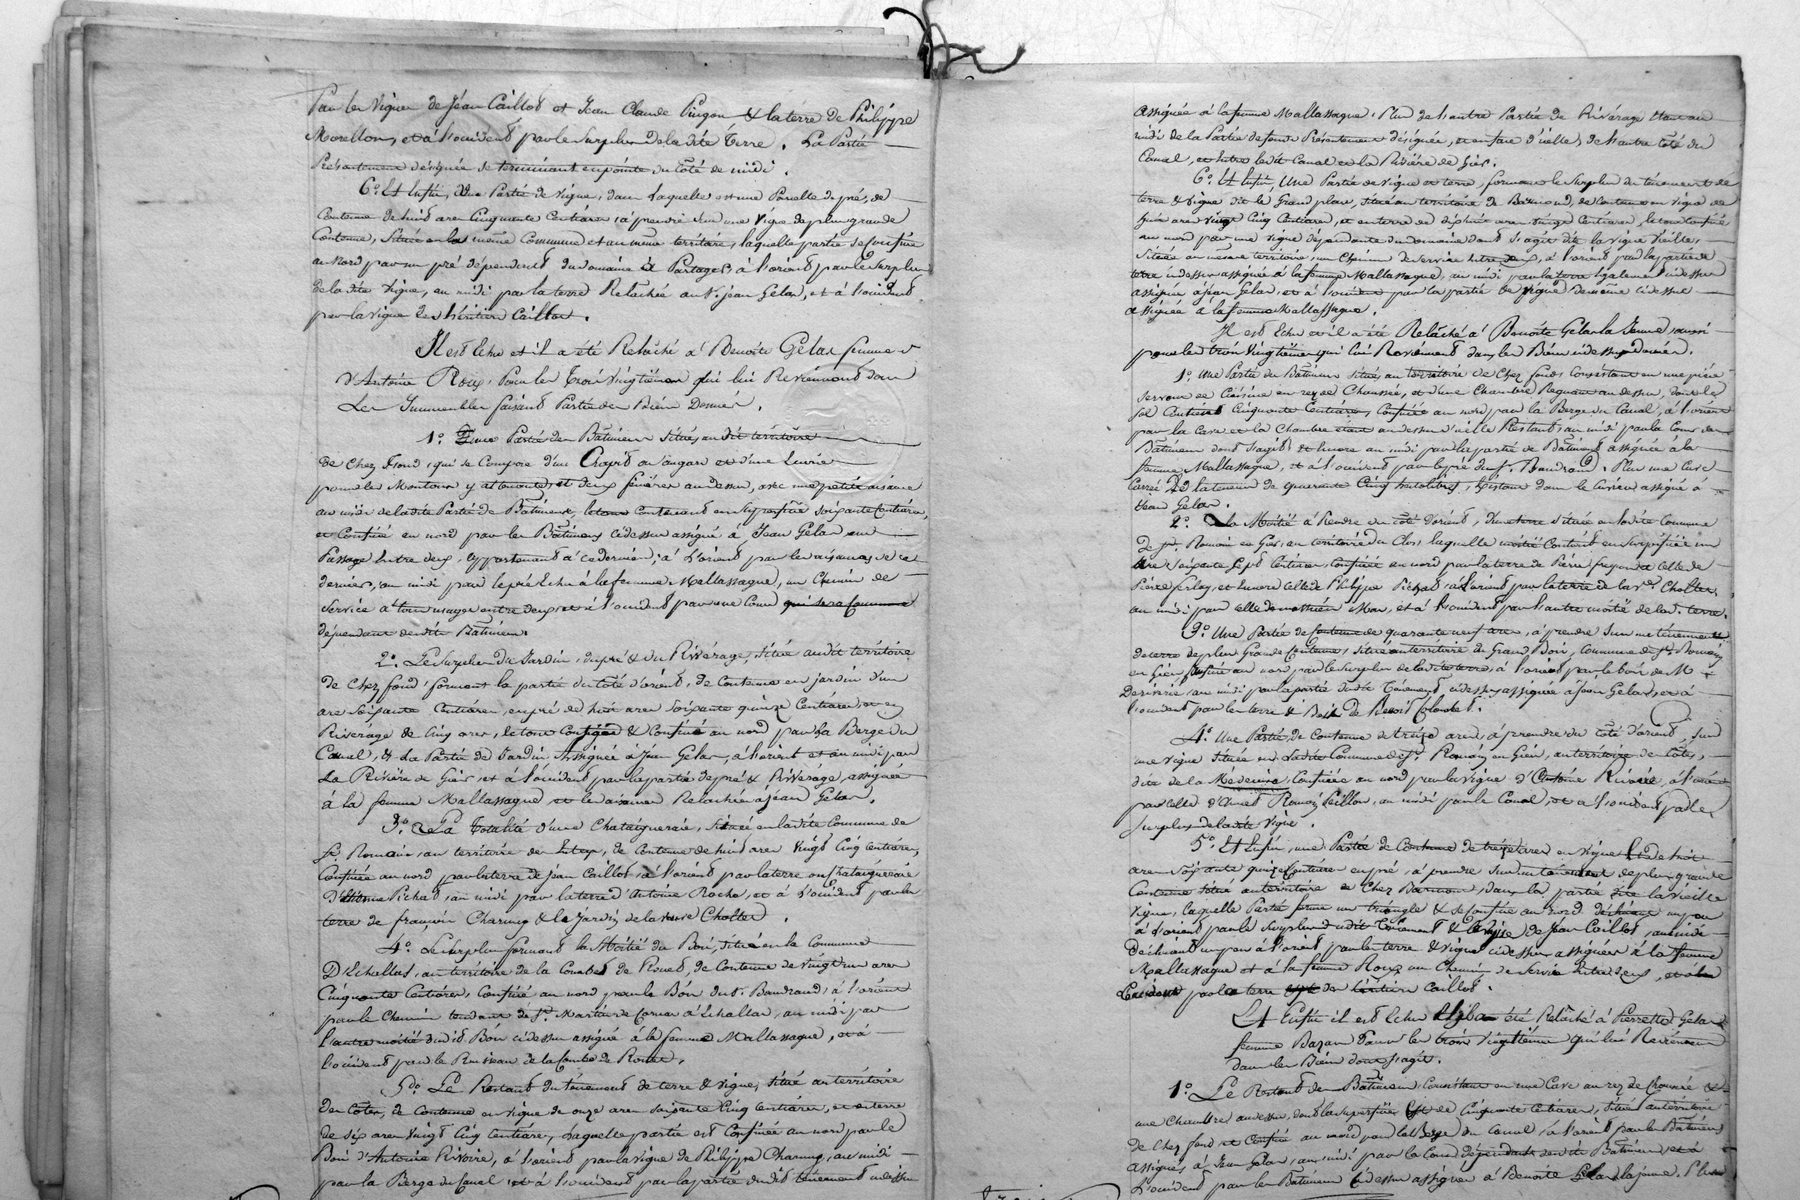 Par les Vignes de Jean Caillot et Jean Claude Pingon & la terre de Philippe
Morellon, et à l'occident par le Surplus de la dite Terre. La Partie
Présentement désignée se terminant en pointe du Côté de midi.
6.° Et Enfin, Une Partie de Vigne, dans Laquelle est une Parcelle de pré, de
Contenue de huit ares Cinquante Centiares, à prendre Sur une Vigne de plus grande
Contenue, Située en la même Commune et au même territoire, laquelle partie se Confine
au Nord par un pré dépendant du Domaine à Partager, à l'orient par le Surplus
de la dite Vigne, au midi par la terre Relachée au S. jean Gelas, et à l'occident
par la vigne des héritiers Caillot.
Il est Echu et il a été Relâché à Benoîte Gelas femme
d'Antoine Roux, Pour les Trois Vingtièmes qui lui Reviennent dans
Les Immeubles faisant Partie des Biens Donnés.
1.° Une Partie des Bâtimens Situés au dit territoire
de Chez Fond, qui se Compose d'un Chapit ou angard et d'une Ecurie
pour les Moutons y attenante, et deux fenières au dessus, avec une petite aisance
au midi de la dite Partie de Bâtimens, le tout Contenant en Superficie Soixante Centiares,
et Confiné au nord par les Bâtimens cidessus assignés à Jean Gelas, un
Passage Entre deux, appartenant à ce dernier, à L'orient par les aisances de ce
dernier, au midi par le pré Echu à la femme Mallassagne, un Chemin de
Service à leur usage entre deux, et à l'occident par une Cour qui sera Commune
dépendant desdits Bâtimens.
2.° Le Surplus du Jardin, du pré & du Rivérage, Situé audit territoire
de Chez fond, formant la partie du Côté d'orient, de Contenue en jardin d'un
are Soixante Centiares, en pré de huit ares Soixante quinze Centiares, et en
Rivérage de Cinq ares, le tout Contigu & Confiné au nord par La Berge du
Canal, & La Partie de Jardin Assignée à Jean Gelas, à l'orient et au midi par
La Rivière de Gier, et à l'occident par la partie de pré & Rivérage, assignée
à la femme Mallassagne et les aisances Relachées à jean Gelas.
3.° La Totalité d'une Chataigneraie, Située en la dite Commune de
St Romain, au territoire de, de Contenue de huit ares Vingt Cinq Centiares,
Confinée au nord par la terre de jean Caillot, à l'orient par la terre ou Chataigneraie
D'Etienne Pichat, au midi par la terre d'Antoine Roche, et à L'occident par la
terre de françois Charmy & le Jardin de la veuve Chollet.
4.° Le Surplus formant la Moitié du Bois, Situé en la Commune
D'Echallas, au territoire de la Combe de Rouet, de Contenue de Vingt un ares
Cinquante Centiares, Confiné au nord par le Bois du S. Baudrand, à l'orient
par le Chemin tendant de St Martin de Cornas à Echallas, au midi par
l'autre moitié dudit Bois cidessus assigné à la femme Mallassagne, et à
l'occident par le Ruisseau de la Combe de Rouet.
5.° Le Restant du tènement de terre & Vigne, Situé au territoire
des Côtes, de Contenue en vigne de onze ares Soixante Cinq Centiares, et en terre
de Six ares Vingt Cinq Centiares, Laquelle partie est Confinée au nord par le
Bois d'Antoine Rivoire, à l'orient par la vigne de Philippe Charmy, au midi
par la Berge du Canal et à l'occident par la partie dudit tènement cidessus
assignée à la femme Mallassagne. Plus de l'autre Partie de Rivérage étant au
midi de la Partie de fonds Présentement désignée, et en face d'icelle, de l'autre côté du
Canal, et Entre ledit Canal et la Rivière de Gier.
6.° Et Enfin, Une Partie de Vigne et terre, formant le Surplus du tènement de
terre & Vigne dit le Grand plan, Situé au territoire de, de Contenue en Vigne de
ares Vingt Cinq Centiares, et en terre de ares Vingt Centiares, le tout Confiné
au nord par une Vigne dépendante du domaine dont S'agit dite la Vigne Vieille,
Située au même territoire, un Chemin de Service Entre deux, à l'orient par la partie de
terre cidessus assignée à la femme Mallassagne, au midi par la terre également cidessus
assignée à jean Gelas, et à l'occident par la partie de Vigne de même cidessus
assignée à la femme Mallassagne.
Il est Echu et il a été Relâché à Benoîte Gelas la Jeune, aussi
pour les trois Vingtièmes qui lui Reviennent dans les Biens cidessus donnés.
1.° Une Partie des Bâtimens Situés au territoire de Chez fond, Consistant en une pièce
Servant de Cuisine en rez de Chaussée, et d'une Chambre Regnant au dessus, dont le
Sol Contient Cinquante Centiares, Confinée au nord par la Berge du Canal, à l'orient
par la Cave et la Chambre étant au dessus d'icelle Restant, au midi par la Cour des
Bâtimens dont S'agit et Encore au midi par la partie de Bâtimens assignée à la
femme Mallassagne, et à l'occident par le pré du S. Baudrand. Plus une Cuve
Carrée de la teneur de quarante Cinq hectolitres, Existant dans le Cuvier assigné à
Jean Gelas.
2.° La Moitié à Prendre du Côté d'orient, d'une terre Située en ladite Commune
De St Romain en Gier, au territoire du Clos, laquelle moitié Contient en Superficie un
are Soixante Sept Centiares, Confinée au nord par la terre de Pierre et celle de
Pierre, et Encore celle de Philippe Pichat, à l'orient par la terre de la Ve Chollet,
au midi par celle de Mathieu, et à l'occident par l'autre moitié de ladite terre.
3.° Une Partie de Contenue de quarante neuf ares, à prendre Sur un tènement
de terre de plus Grande Contenue, Situé au territoire du Grand Bois, Commune de St Romain
en Gier, Confiné au nord par le Surplus de la dite terre, à l'orient par le bois de M.
, au midi par la partie dudit Tènement cidessus assignée à Jean Gelas, et à
l'occident par les terre & Bois de Benoit Colombet.
4.° Une Partie, de Contenue de treize ares, à prendre du Côté d'orient, Sur
une Vigne Située en Ladite Commune de St Romain en Gier, au territoire des Côtes,
dite de la Medecine, Confinée au nord par la Vigne d'Antoine Rivoire, à l'orient
par celle d'Annet Romain Peillon, au midi par le Canal, et à l'occident par le
Surplus de la dite Vigne.
5.° Et Enfin, une Partie de Contenue de treize ares en Vigne & de huit
ares Soixante quinze Centiares en pré, à prendre Sur un tènement de plus grande
Contenue Situé au territoire de Chez Barmon, dans la partie dite la Vieille
Vigne, laquelle Partie forme un triangle & se Confine au nord déclinant un peu
à L'orient par le Surplus dudit Tènement & la Vigne de Jean Caillot, au midi
Déclinant un peu à l'orient par la terre & vigne cidessus assignées à la femme
Mallassagne et à la femme Roux, un Chemin de Service Entre deux, et à
L'occident par la terre des héritiers Caillot.
Et Enfin il est Echu & il a été Relâché à Pierrette Gelas
femme Bazan Pour les trois Vingtièmes qui lui Reviennent
dans les Biens dont S'agit.
1.° Le Restant des Bâtimens, Consistant en une Cave au rez de Chaussée &
une Chambre au dessus, dont la Superficie est de Cinquante Centiares, Situé au territoire
de Chez fond et Confiné au nord par la Berge du Canal, à l'orient par les Bâtimens
assignés à Jean Gelas, au midi par la Cour dépendant desdits Bâtimens, et à
L'occident par les Bâtimens cidessus assignés à Benoîte Gelas la jeune. Plus